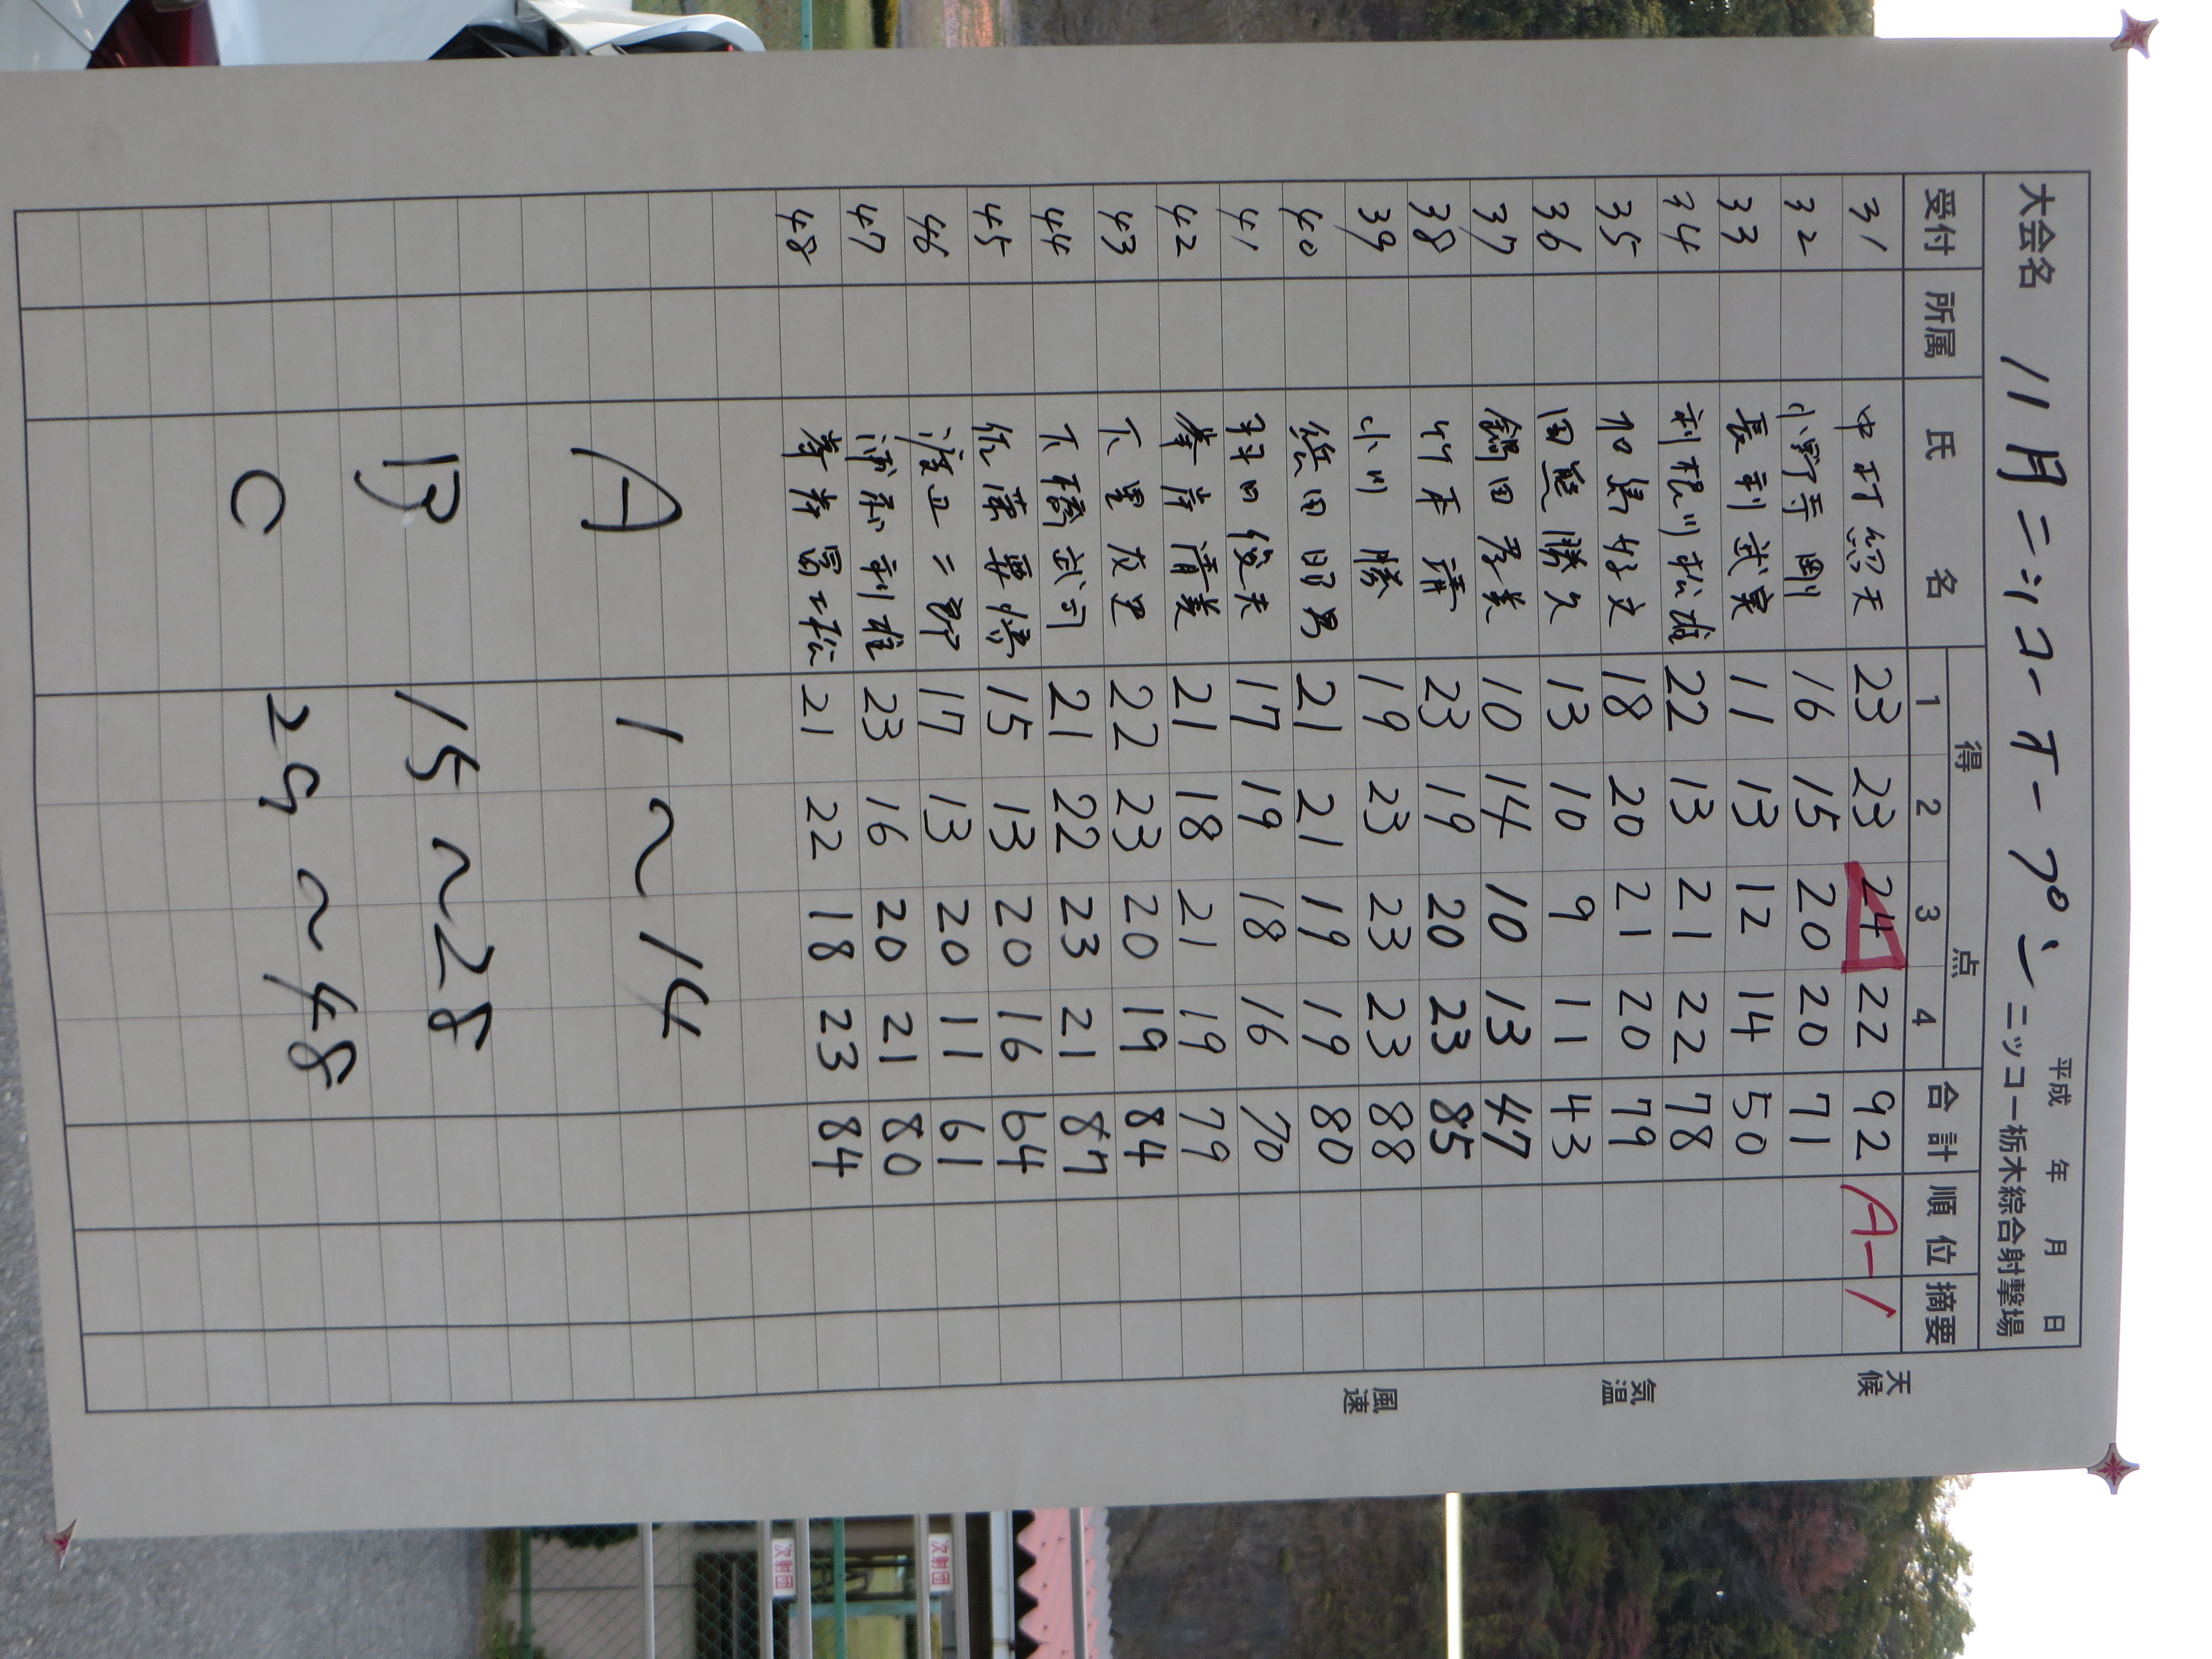 大会名 11月ニッコーオープン
平成 年 月 日
ニッコー栃木綜合射撃場
受付 所属 氏名 得点 合計 順位 摘要
1 2 3 4
31 中村 23 23 24 22 92 A-1
32 小野寺 剛 16 15 20 20 71
33 長 武実 11 13 12 14 50
34 利根川松雄 22 13 21 22 78
35 18 20 21 20 79
36 田熊勝久 13 10 9 11 43
37 鍋田孝美 10 14 10 13 47
38 竹 清 23 19 20 23 85
39 小川 勝 19 23 23 23 88
40 田昭男 21 21 19 19 80
41 羽田俊夫 17 19 18 16 70
42 峯岸清美 21 18 21 19 79
43 22 23 20 19 84
44 下橋武司 21 22 23 21 87
45 佐藤 15 13 20 16 64
46 渡辺二郎 17 13 20 11 61
47 利雄 23 16 20 21 80
48 21 22 18 23 84
A 1~14
B 15~28
C 29~48
天候
気温
風速
次射団
次射団